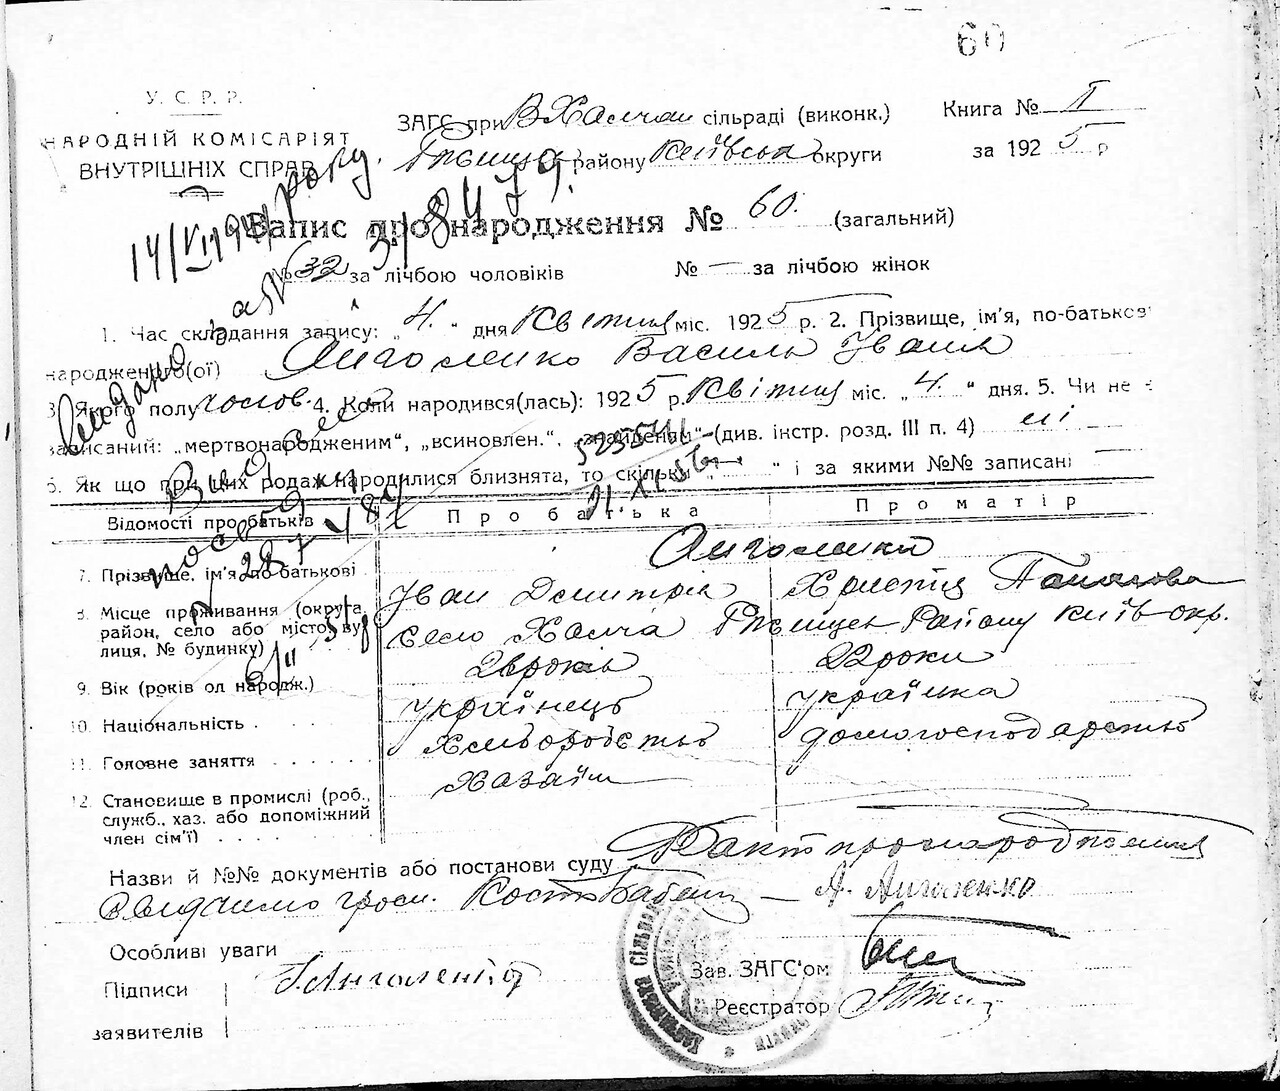 60
У. С. Р. Р.
НАРОДНІЙ КОМІСАРІЯТ
ВНУТРІШНІХ СПРАВ
ЗАГС при В Халчан сільраді (виконк.)
Книга № I
району Київська округи
за 1925 р
Запис про народження № 60. (загальний)
№ 32 за лічбою чоловіків № — за лічбою жінок
1. Час складання запису: „4.“ дня Квітня міс. 1925 р. 2. Прізвище, ім'я, по-батькові
народженого(ої) Анголенко Василь Іван
3. Якого полу чолов. 4. Коли народився(лась): 1925 р. Квітня міс. „4.“ дня. 5. Чи не є
записаний: „мертвонародженим“, „всиновлен.“, „знайденим“ (див. інстр. розд. III п. 4) ні
6. Як що при цих родах народилися близнята, то скільки „ “ і за якими №№ записані —
Відомості про батьків
Про батька
Про матір
7. Прізвище, ім'я, по-батькові
Анголенки
Іван Дмитрів
Христя Панасова
8. Місце проживання (округа, район, село або місто, вулиця, № будинку)
село Халча Ржищев Району Київ окр.
9. Вік (років од народж.)
22 роки
10. Національність
українець
українка
11. Головне заняття
Хліборобство
домогосподарство
12. Становище в промислі (роб., служб., хаз. або допоміжний член сім'ї)
Хазаїн
Назви й №№ документів або постанови суду Факт про народження
свідчимо гром. Кость Бабенко — А. Анголенко
Особливі уваги
Підписи
заявителів
І Анголенко
Зав. ЗАГС'ом
Реєстратор
Видано
14/VII 1941 року.